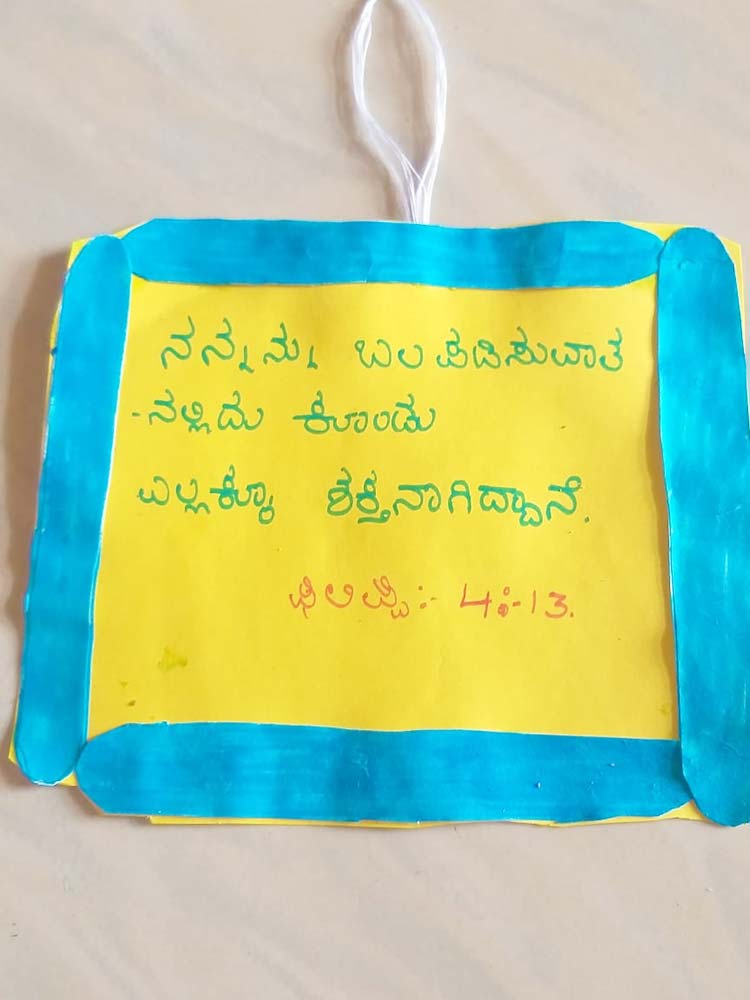 ನನ್ನನ್ನು ಬಲಪಡಿಸುವಾತ
-ನಲ್ಲಿದು ಕೊಂಡು
ಎಲ್ಲಕ್ಕೂ ಶಕ್ತನಾಗಿದ್ದಾನೆ.
ಫಿಲಿಪ್ಪಿ:- 4:-13.